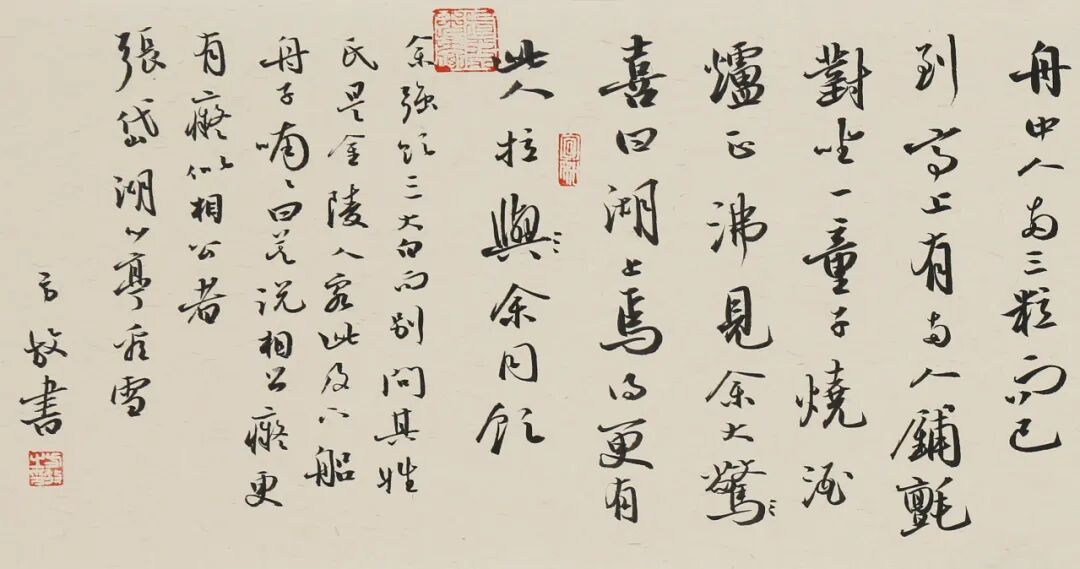 舟中人兩三粒而已
到亭上有兩人鋪氈
對坐一童子燒酒
爐正沸見余大驚
喜曰湖上焉得更有
此人拉與余同飲
余強飲三大白而別問其姓
氏是金陵人客此及下船
舟子喃々曰莫說相公癡更
有癡似相公者
張岱湖心亭看雪
方書